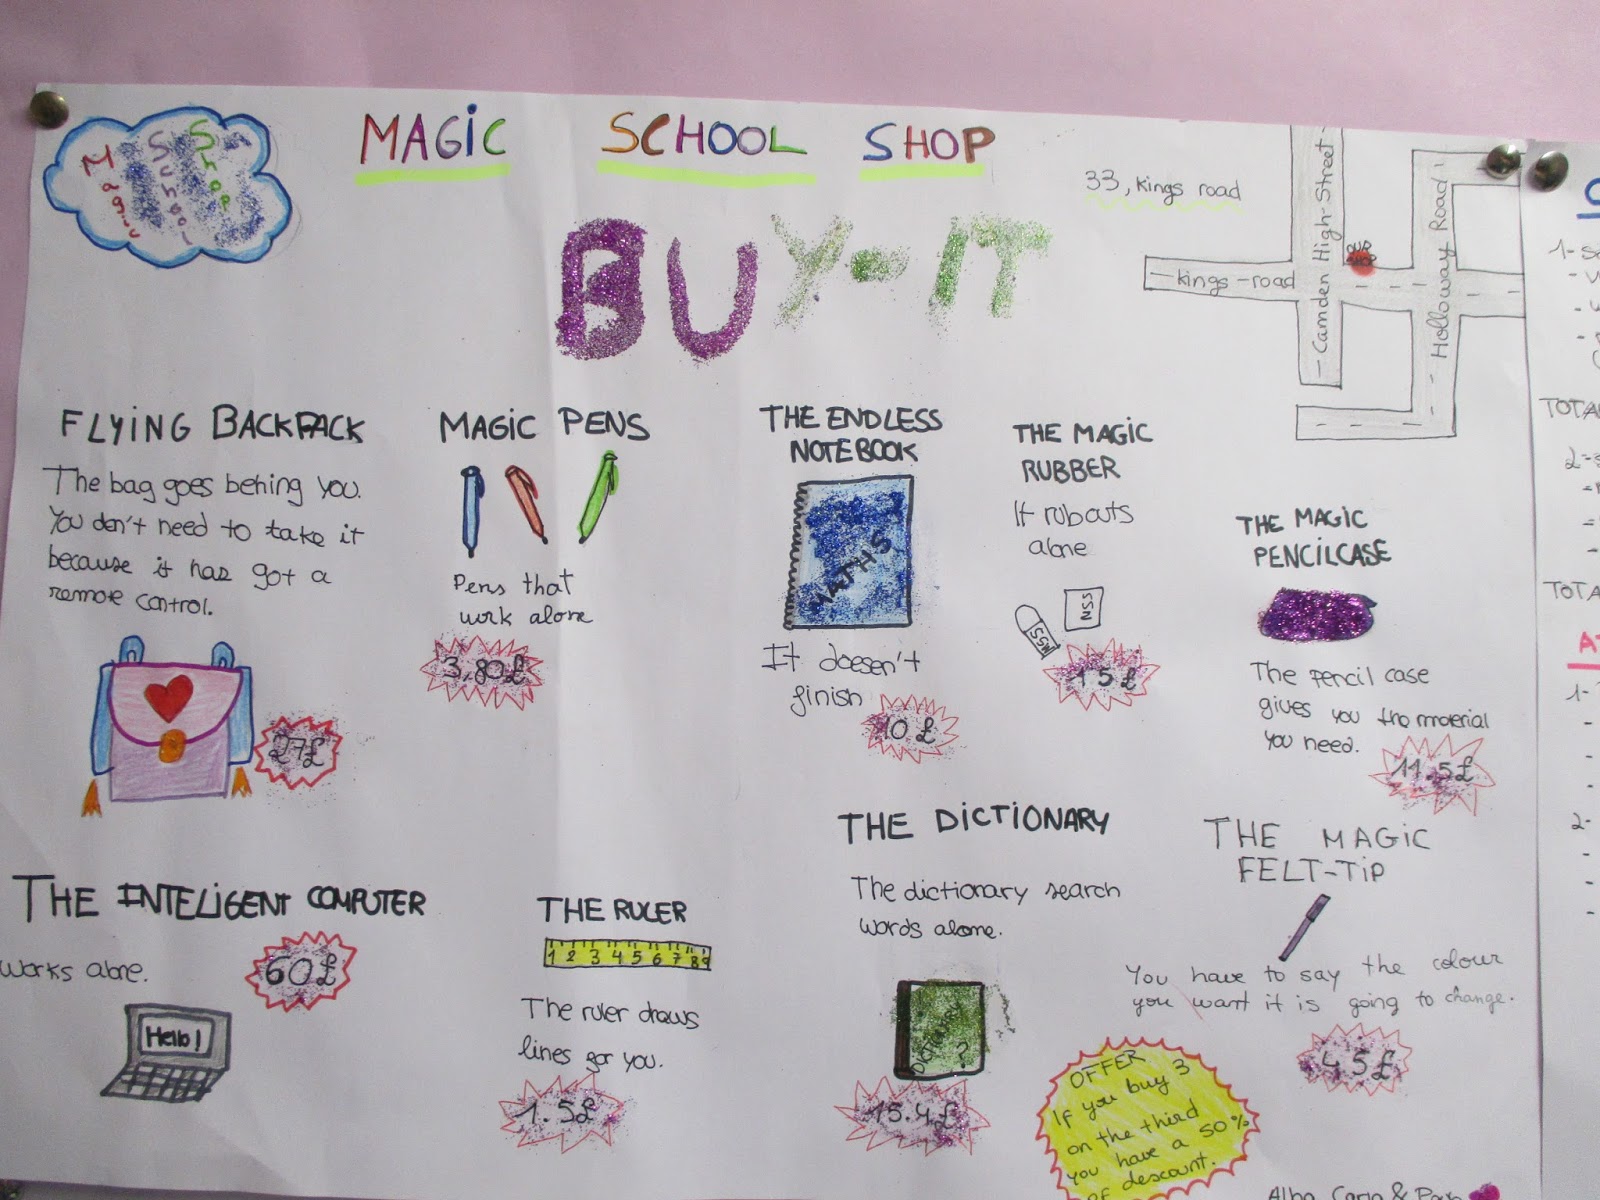 Magic
School
Shop
MAGIC SCHOOL SHOP
BUY-IT
33, kings road
Kings-road
Camden High-Street
OUR
SHOP
Holloway Road
FLYING BACKPACK
The bag goes behing you.
You don't need to take it
because it has got a
remote control.
27£
MAGIC PENS
Pens that
work alone
3,80£
THE ENDLESS
NOTEBOOK
MATHS
It doesen't
finish
10£
THE MAGIC
RUBBER
It rubouts
alone
1.5£
THE MAGIC
PENCILCASE
The pencil case
gives you the material
you need.
11.5£
THE INTELIGENT COMPUTER
Works alone.
60£
Hello!
THE RULER
1 2 3 4 5 6 7 8 9
The ruler draws
lines for you.
1.5£
THE DICTIONARY
The dictionary search
words alone.
?
15.4£
THE MAGIC
FELT-TIP
You have to say the colour
you want it is going to change.
4.5£
OFFER
If you buy 3
on the third
you have a 50%
of descount.
TOTA
TOTA